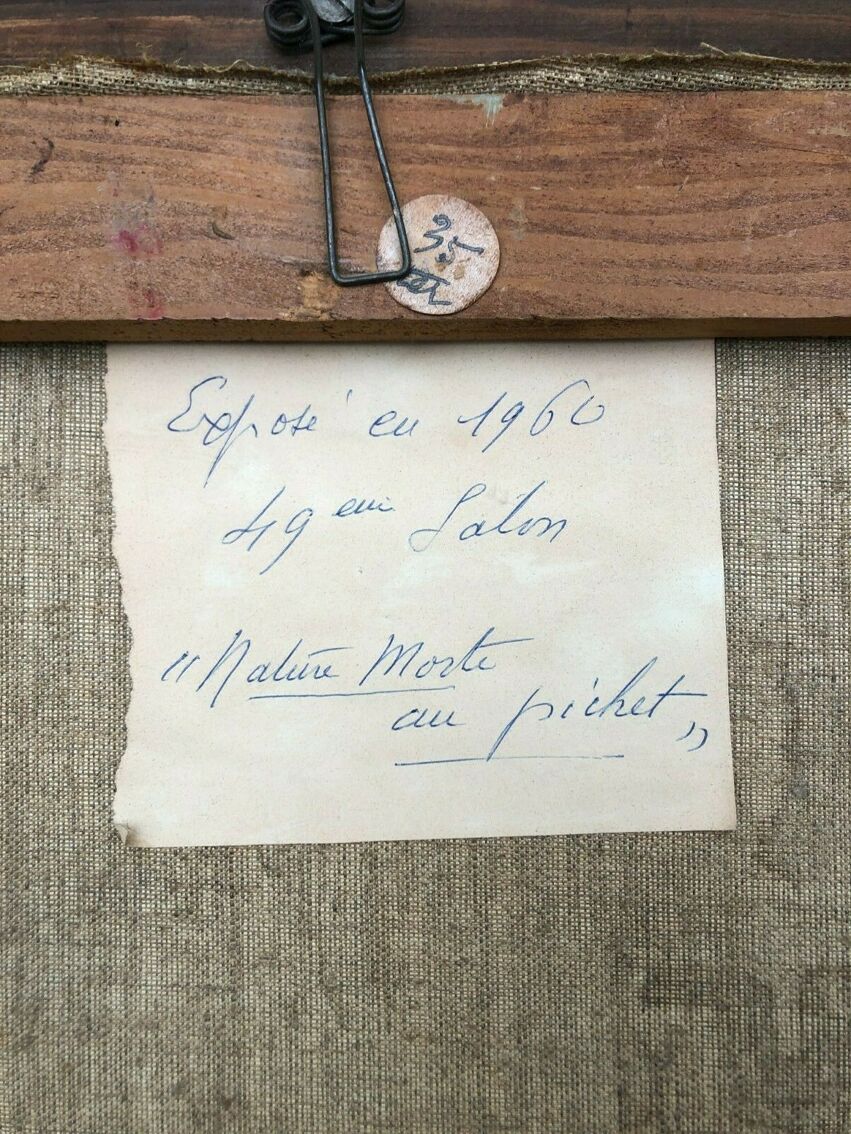 35
Exposé en 1960
49 eme Salon
"Nature Morte
au pichet"